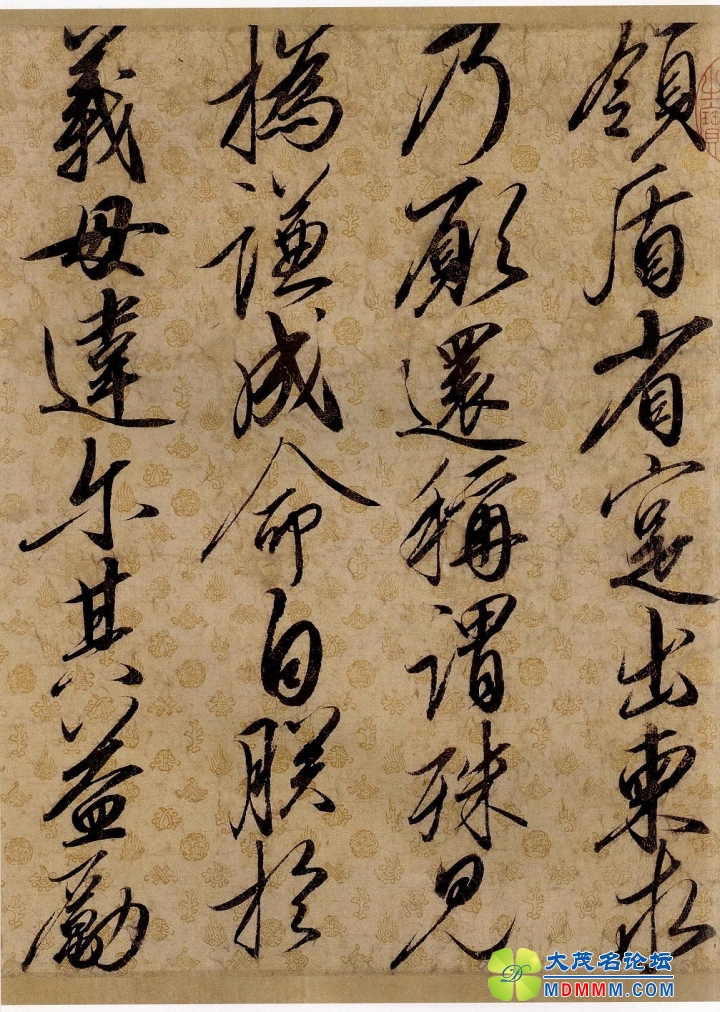 領盾省寔出柬求
乃願還稱謂殊見
撝謙成命自朕於
義毋違尔其益勵
大茂名论坛
MDMMM.COM